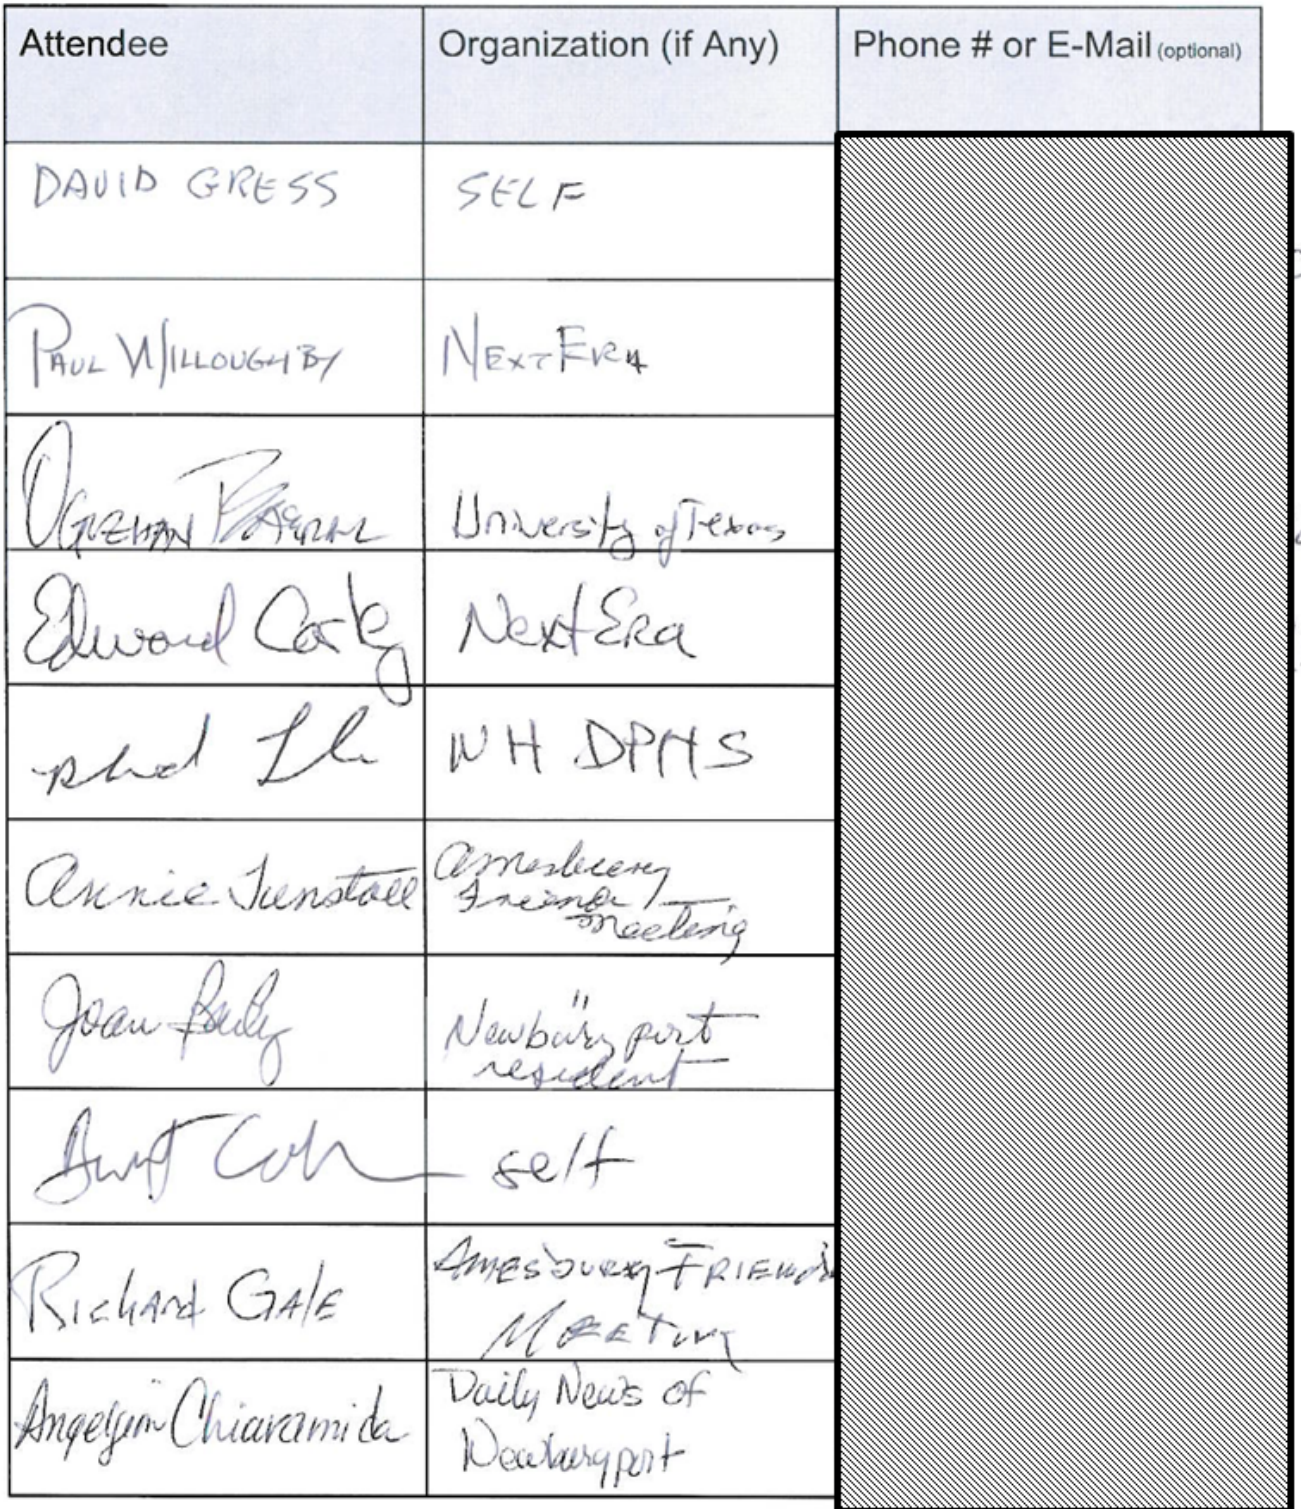 Attendee Organization (if Any) Phone # or E-Mail (optional)
DAVID GRESS SELF
PAUL WILLOUGHBY NEXTERA
OGUZHAN University of Texas
Edward NextEra
NH DPHS
Annie Tunstall Amesbury
Friends
Meeting
Joan Newburyport
resident
Burt self
RICHARD GALE AMESBURY FRIENDS
MEETING
Angeljean Chiaramida Daily News of
Newburyport